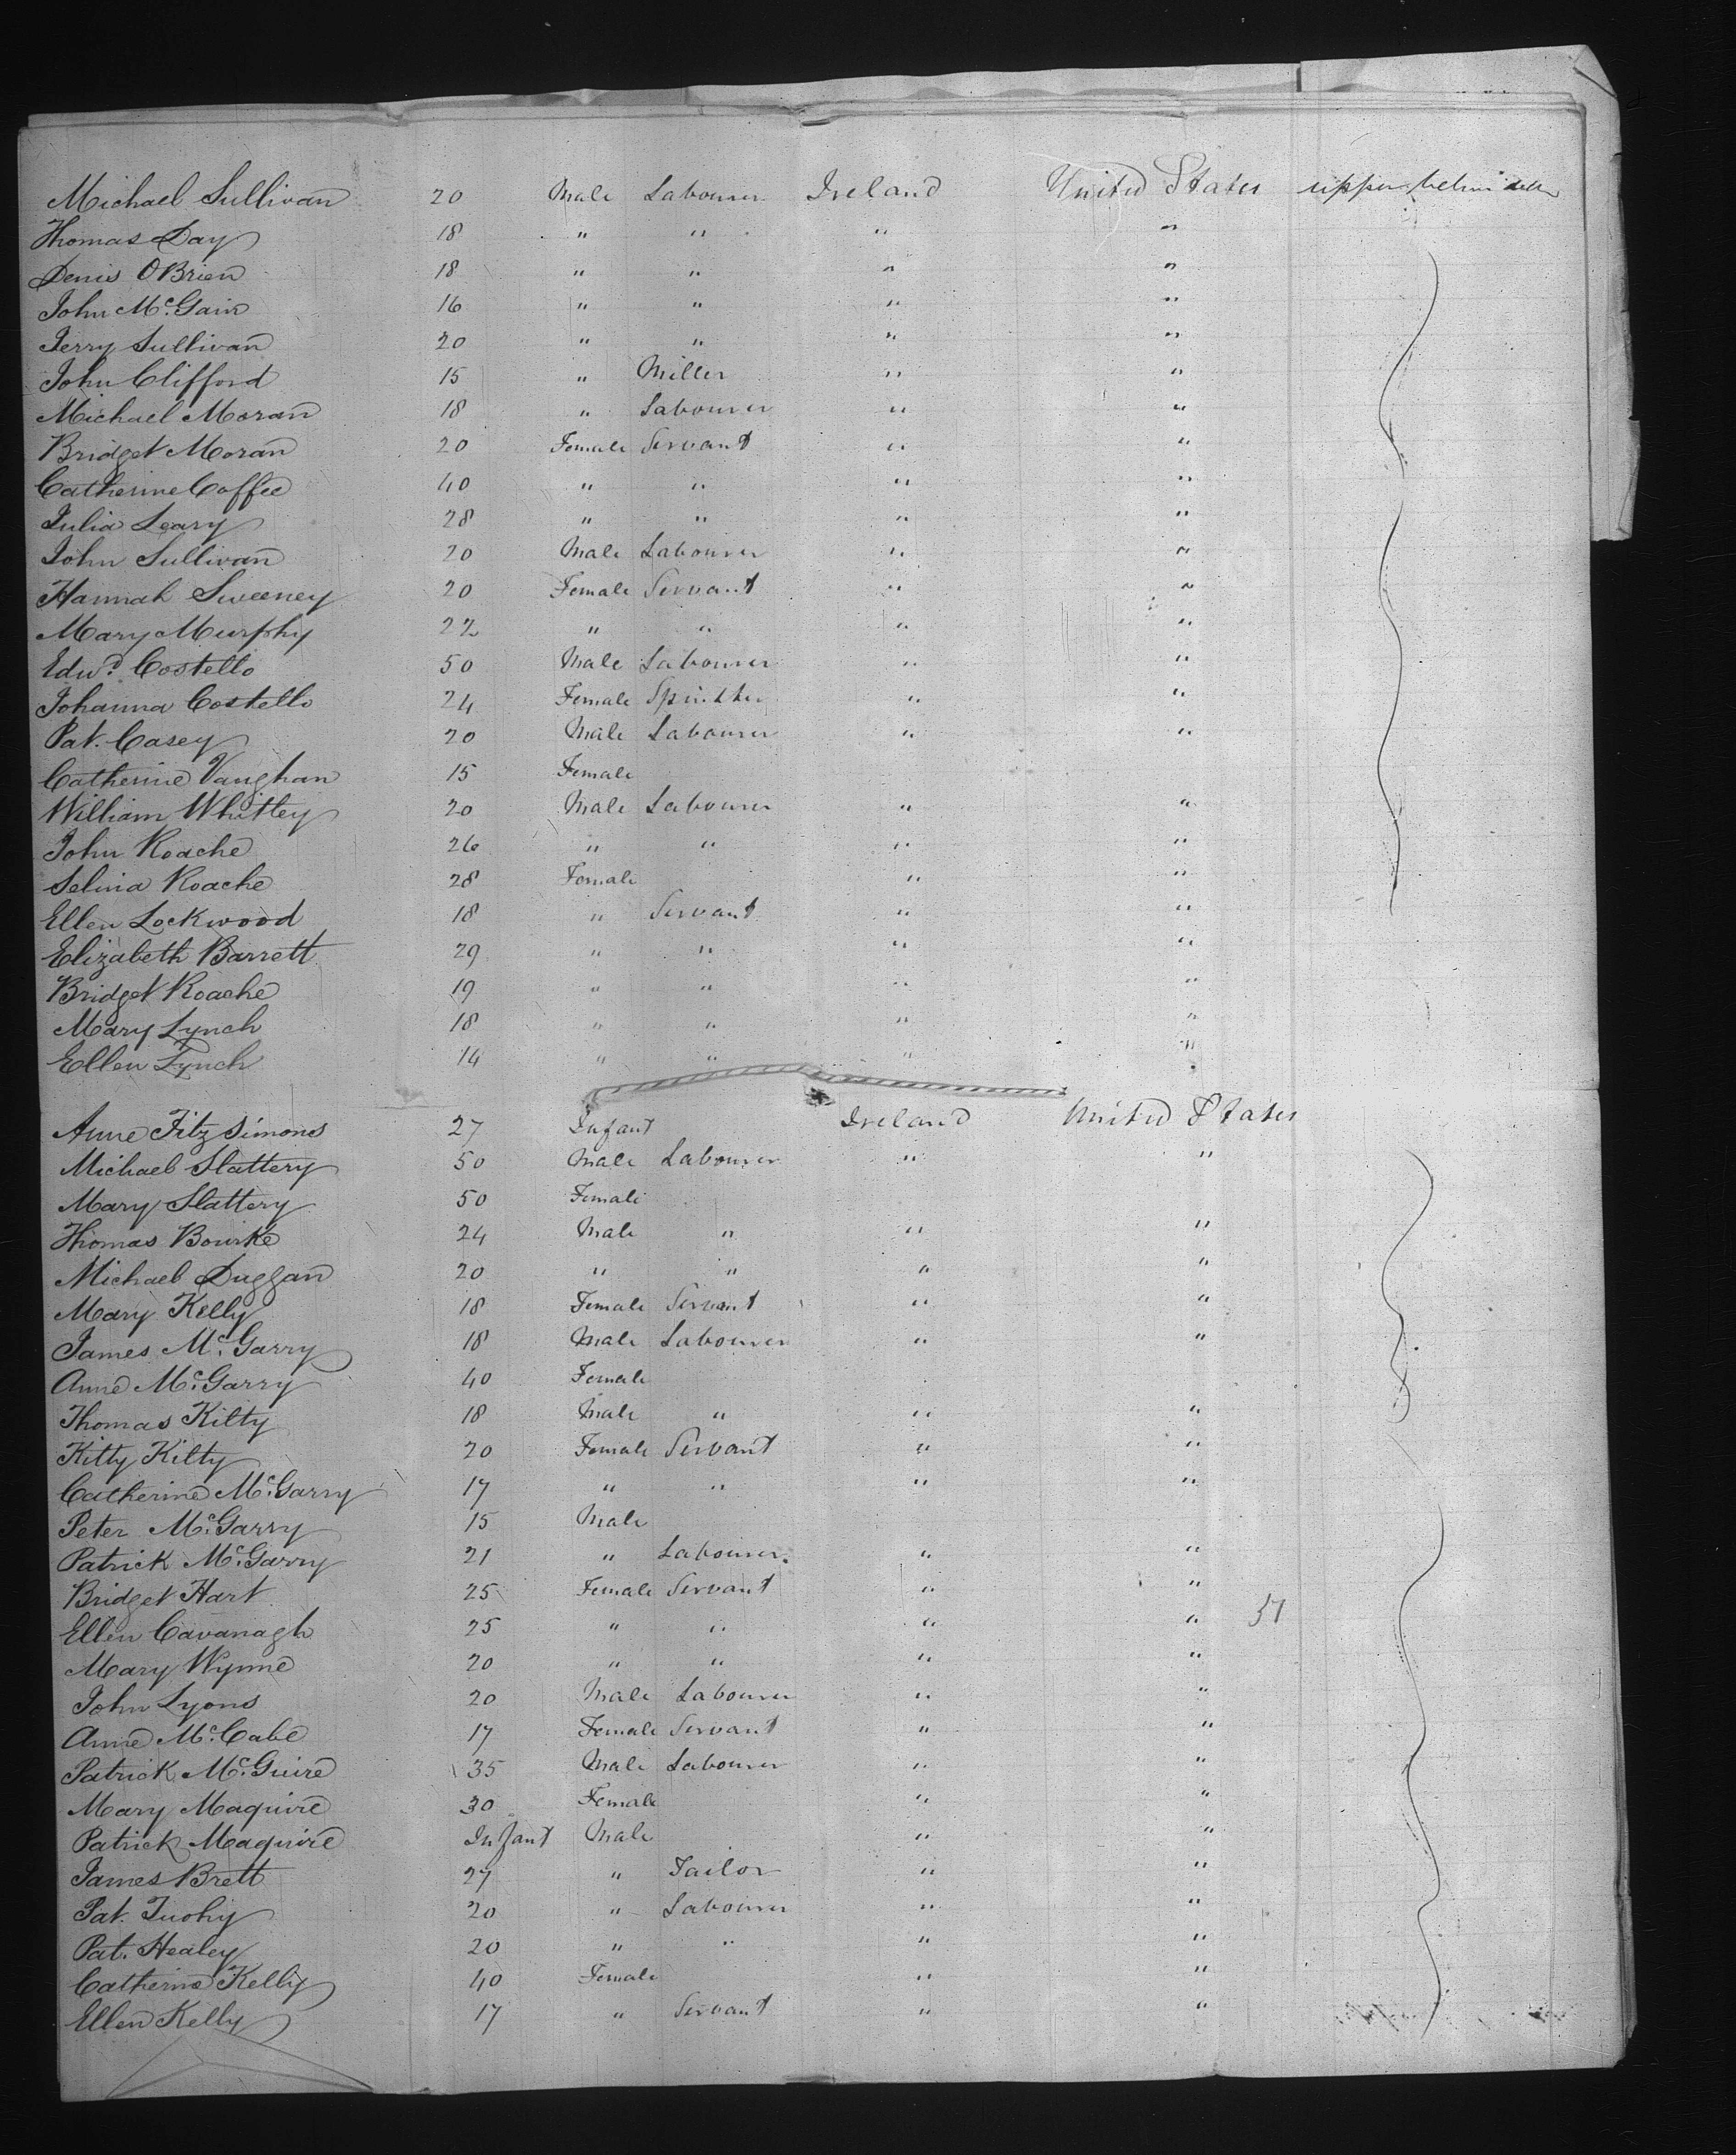 Michael Sullivan 20 Male Labourer Ireland United States upper between decks
Thomas Day 18 " " " "
Denis OBrien 18 " " " "
John McGain 16 " " " "
Jerry Sullivan 20 " " " "
John Clifford 15 " Miller " "
Michael Moran 18 " Labourer " "
Bridget Moran 20 Female Servant " "
Catherine Coffee 40 " " " "
Julia Leary 28 " " " "
John Sullivan 20 Male Labourer " "
Hannah Sweeney 20 Female Servant " "
Mary Murphy 22 " " " "
Edwd. Costello 50 Male Labourer " "
Johanna Costello 24 Female Spinster " "
Pat. Casey 20 Male Labourer " "
Catherine Vaughan 15 Female
William Whitley 20 Male Labourer " "
John Roache 26 " " " "
Selina Roache 28 Female " "
Ellen Lockwood 18 " Servant " "
Elizabeth Barrett 29 " " " "
Bridget Roache 19 " " " "
Mary Lynch 18 " " " "
Ellen Lynch 14 " " " "
Anne Fitz Simons 27 Infant Ireland United States
Michael Slattery 50 Male Labourer " "
Mary Slattery 50 Female
Thomas Bourke 24 Male " " "
Michael Duggan 20 " " " "
Mary Kelly 18 Female Servant " "
James McGarry 18 Male Labourer " "
Anne McGarry 40 Female
Thomas Kilty 18 Male " " "
Kitty Kilty 20 Female Servant " "
Catherine McGarry 17 " " " "
Peter McGarry 15 Male
Patrick McGarry 21 " Labourer. " "
Bridget Hart 25 Female Servant " "
Ellen Cavanagh 25 " " " " 51
Mary Wynne 20 " " " "
John Lyons 20 Male Labourer " "
Anne McCabe 17 Female Servant " "
Patrick McGuire 35 Male Labourer " "
Mary Maguire 30 Female " "
Patrick Maguire Infant Male " "
James Brett 27 " Tailor " "
Pat. Tuohy 20 " Labourer " "
Pat. Healey 20 " " " "
Catherine Kelly 40 Female " "
Ellen Kelly 17 " Servant " "